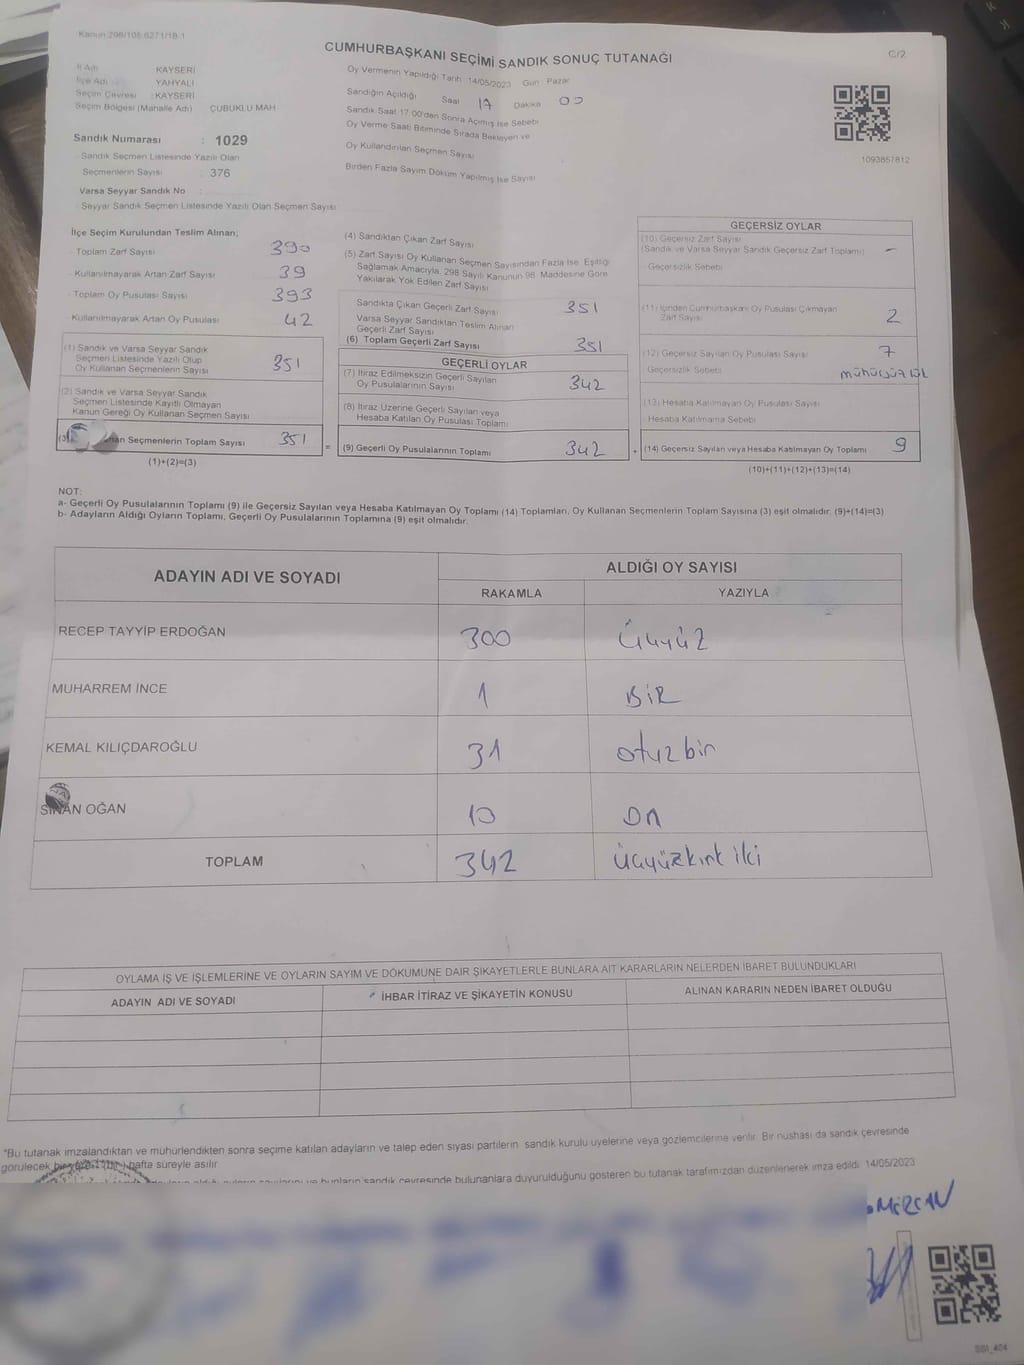 Kanun:298/105 6271/18-1
CUMHURBAŞKANI SEÇİMİ SANDIK SONUÇ TUTANAĞI
C/2
İl Adı KAYSERİ
İlçe Adı YAHYALI
Seçim Çevresi : KAYSERİ
Seçim Bölgesi (Mahalle Adı) ÇUBUKLU MAH
Sandık Numarası : 1029
Sandık Seçmen Listesinde Yazılı Olan
Seçmenlerin Sayısı : 376
Varsa Seyyar Sandık No
Seyyar Sandık Seçmen Listesinde Yazılı Olan Seçmen Sayısı
Oy Vermenin Yapıldığı Tarih 14/05/2023 Gün : Pazar
Sandığın Açıldığı Saat 17 Dakika 00
Sandık Saat 17:00'den Sonra Açılmış İse Sebebi
Oy Verme Saati Bitiminde Sırada Bekleyen ve
Oy Kullandırılan Seçmen Sayısı
Birden Fazla Sayım Döküm Yapılmış İse Sayısı
1093857812
İlçe Seçim Kurulundan Teslim Alınan;
Toplam Zarf Sayısı 390
Kullanılmayarak Artan Zarf Sayısı 39
Toplam Oy Pusulası Sayısı 393
Kullanılmayarak Artan Oy Pusulası 42
(1) Sandık ve Varsa Seyyar Sandık
Seçmen Listesinde Yazılı Olup
Oy Kullanan Seçmenlerin Sayısı 351
(2) Sandık ve Varsa Seyyar Sandık
Seçmen Listesinde Kayıtlı Olmayan
Kanun Gereği Oy Kullanan Seçmen Sayısı
(3) Seçmenlerin Toplam Sayısı 351 =
(1)+(2)=(3)
(4) Sandıktan Çıkan Zarf Sayısı
(5) Zarf Sayısı Oy Kullanan Seçmen Sayısından Fazla İse, Eşitliği
Sağlamak Amacıyla, 298 Sayılı Kanunun 98. Maddesine Göre
Yakılarak Yok Edilen Zarf Sayısı
Sandıkta Çıkan Geçerli Zarf Sayısı 351
Varsa Seyyar Sandıktan Teslim Alınan
Geçerli Zarf Sayısı
(6) Toplam Geçerli Zarf Sayısı 351
GEÇERLİ OYLAR
(7) İtiraz Edilmeksizin Geçerli Sayılan
Oy Pusulalarının Sayısı 342
(8) İtiraz Üzerine Geçerli Sayılan veya
Hesaba Katılan Oy Pusulası Toplamı
(9) Geçerli Oy Pusulalarının Toplamı 342 +
GEÇERSİZ OYLAR
(10) Geçersiz Zarf Sayısı
(Sandık ve Varsa Seyyar Sandık Geçersiz Zarf Toplamı) -
Geçersizlik Sebebi
(11) İçinden Cumhurbaşkanı Oy Pusulası Çıkmayan
Zarf Sayısı 2
(12) Geçersiz Sayılan Oy Pusulası Sayısı 7
Geçersizlik Sebebi
(13) Hesaba Katılmayan Oy Pusulası Sayısı
Hesaba Katılmama Sebebi
(14) Geçersiz Sayılan veya Hesaba Katılmayan Oy Toplamı 9
(10)+(11)+(12)+(13)=(14)
NOT:
a- Geçerli Oy Pusulalarının Toplamı (9) ile Geçersiz Sayılan veya Hesaba Katılmayan Oy Toplamı (14) Toplamları, Oy Kullanan Seçmenlerin Toplam Sayısına (3) eşit olmalıdır. (9)+(14)=(3)
b- Adayların Aldığı Oyların Toplamı, Geçerli Oy Pusulalarının Toplamına (9) eşit olmalıdır.
ADAYIN ADI VE SOYADI ALDIĞI OY SAYISI
RAKAMLA YAZIYLA
RECEP TAYYİP ERDOĞAN 300 Üçyüz
MUHARREM İNCE 1 BİR
KEMAL KILIÇDAROĞLU 31 otuzbir
SİNAN OĞAN 10 On
TOPLAM 342 üçyüzkırk iki
OYLAMA İŞ VE İŞLEMLERİNE VE OYLARIN SAYIM VE DÖKÜMÜNE DAİR ŞİKAYETLERLE BUNLARA AİT KARARLARIN NELERDEN İBARET BULUNDUKLARI
ADAYIN ADI VE SOYADI İHBAR İTİRAZ VE ŞİKAYETİN KONUSU ALINAN KARARIN NEDEN İBARET OLDUĞU
"Bu tutanak imzalandıktan ve mühürlendikten sonra seçime katılan adayların ve talep eden siyasi partilerin sandık kurulu üyelerine veya gözlemcilerine verilir. Bir nüshası da sandık çevresinde
görülecek hafta süreyle asılır.
bunların sandık çevresinde bulunanlara duyurulduğunu gösteren bu tutanak tarafımızdan düzenlenerek imza edildi. 14/05/2023
MERCAN